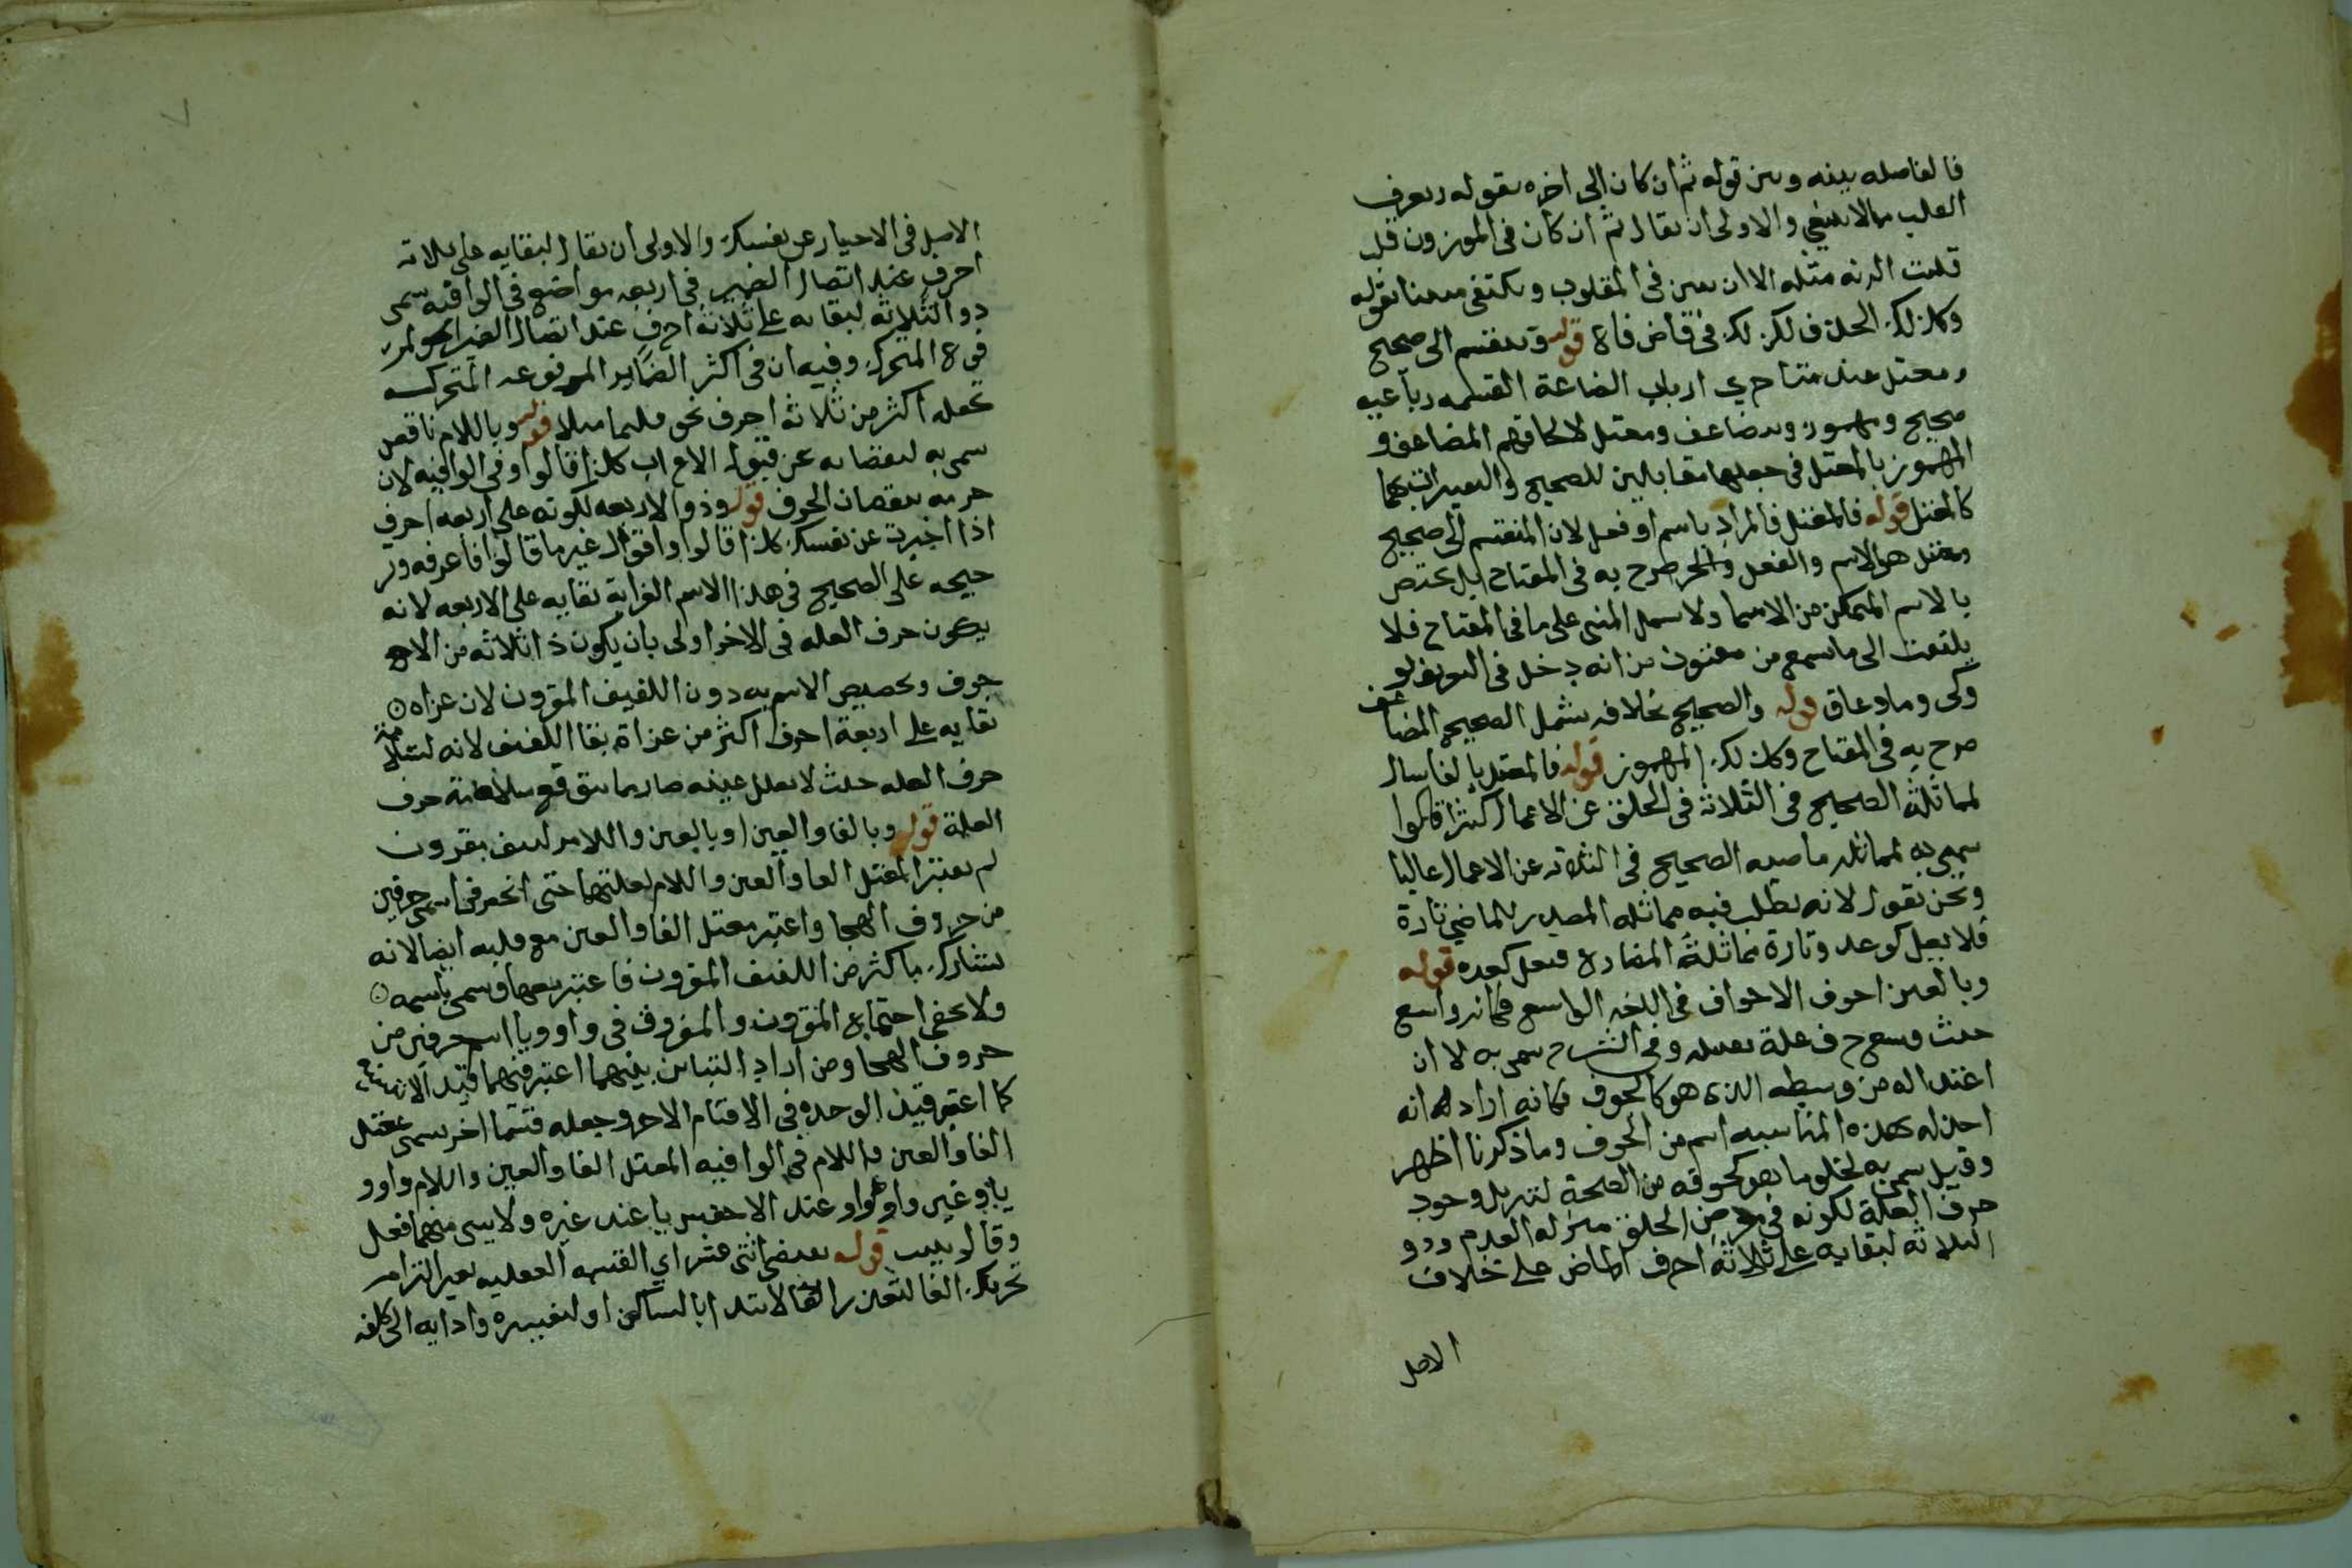 فالفاصله بينه وبين قوله ثم ان كان الى اخره بقوله ويعرف
القلب مما لا ينبغي والاولى ان يقال ثم ان كان في الموزون قلب
قلبت الزنه مثله الا ان يبين في المقلوب ويكتفى بقوله
وكذلك الحذف لكن لك في قاض فاع قوله وتنقسم الى صحيح
ومعتل عند متاخري ارباب الصناعة القسمه رباعيه
صحيح ومهموز ومضاعف ومعتل لالحاقهم المضاعف و
المهموز بالمعتل في جعلهما مقابلين للصحيح
كالمعتل قوله فالمعتل فالمراد باسم او فعل لان المنقسم الى صحيح
ومعتل هو الاسم والفعل صرح به في المفتاح بل يختص
بالاسم المتمكن من الاسما ولا يشمل المبنى على ما في المفتاح فلا
يلتفت الى ما سمع من انه دخل في التعريف لو
وكى وما وغاق قوله والصحيح بخلافه يشمل الصحيح المضاعف
صرح به في المفتاح وكذلك المهموز قوله فالمعتل بالفا مثال
لمماثلة الصحيح في الثلاثة في الخلو عن الاعلال كثيرا قالوا
سمى به لمماثله ماضيه الصحيح في الثلاثه عن الاعلال غالبا
ونحن نقول لانه يطلب فيه مماثله المصدر للماضي تارة
فلا يعل كوعد وتارة مماثلة المضارع فيعل كعده قوله
وبالعين اجوف الاجواف في اللغه الواسع فكانه واسع
حيث وسع حرف علة وفي الشرح سمى به لا ان
اعتداله من وسطه الذى هو كالجوف فكانه اراد انه
اخذ له بهذه المناسبه اسم من الجوف وما ذكرنا اظهر
وقيل سمى به لخلو ما هو كجوفه من الصحة لتنزيل وجود
حرف العلة لكونه في معرض الحذف منزله العدم وذو
الثلاثه لبقايه على ثلاثة احرف الماض على خلاف
الاصل
الاصل في الاخبار عن نفسك والاولى ان يقال لبقايه على ثلاثه
احرف عند اتصال الضمير في اربعه مواضع في الوافيه سمى
ذو الثلاثه لبقايه على ثلاثة احرف عند اتصال الضمير
فوع المتحرك وفيه ان في اكثر الضماير المرفوعه المتحركه
تجعله اكثر من ثلاثة احرف نحو قلتما مثلا قوله وباللام ناقص
سمى به لنقصانه عن قبول الاعراب كذا قالوا وفي الوافيه لان
جزمه بنقصان الحرف قوله وذو الاربعه لكونه على اربعه احرف
اذا اخبرت عن نفسك كذا قالوا واقول غير ما قالوا فاعرفه وتر
جيحه على الصحيح في هذا الاسم لغرابة بقايه على الاربعه لانه
يكون حرف العله في الاخر اولى بان يكون ذا ثلاثه من الاجوف
جوف وتخصيص الاسم به دون اللفيف المقرون لان غرابه
بقايه على اربعة احرف اكثر من غرابة بقا اللفيف لانه
حرف العله حيث لا يعلل عينه صار مما يتوقع سلامته حرف
العلة قوله وبالفا والعين او بالعين واللام لفيف مقرون
لم يعتبر المعتل الفا والعين واللام لقلتهما حتى انحصر في اسمى حرفين
من حروف الهجا واعتبر معتل الفا والعين مع قلته ايضا لانه
يتشارك باكثر من اللفيف المقرون فاعتبر معها وسمى باسمه
ولا يخفى اجتماع المقرون والمفروق في واو ويا اسم حرفين من
حروف الهجا ومن اراد التباين بينهما اعتبر فيهما قيد
كما اعتبر قيد الوحده في الاقسام الاخر وجعله قسما اخر سمى معتل
الفا والعين واللام في الوافيه المعتل الفا والعين واللام واو و
يا وغير واو واو عند الاخفش يا عند غيره ولا يبنى منهما فعل
وقالو يييت قوله بعضى اثنى عشر اي القسمه العقليه بغير التزام
تحريك الفا لتعذر الابتدا بالساكن او لتعسره وادايه الى كلفه